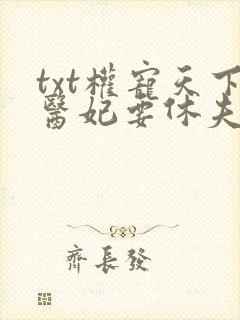 txt權寵天下
醫妃要休夫
齊長發